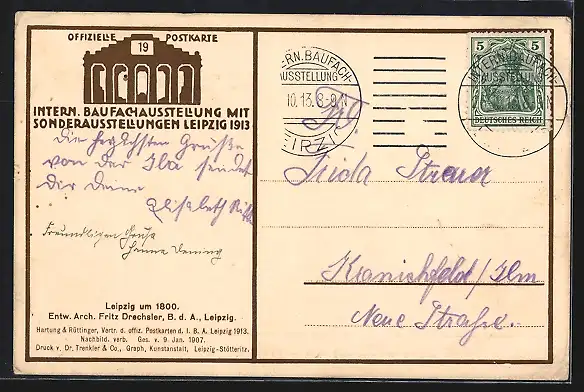 OFFIZIELLE POSTKARTE
19
INTERN. BAUFACHAUSSTELLUNG MIT
SONDERAUSSTELLUNGEN LEIPZIG 1913
Die herzlichsten Grüße
von der Iba sendet
Dir Deine
Elisabeth
Freundlichen Gruß
Leipzig um 1800.
Entw. Arch. Fritz Drechsler, B. d. A., Leipzig.
Hartung & Rüttinger, Vertr. d. offiz. Postkarten d. I. B. A. Leipzig 1913.
Nachbild. verb. Ges. v. 9. Jan. 1907.
Druck v. Dr. Trenkler & Co., Graph. Kunstanstalt, Leipzig-Stötteritz.
INTERN. BAUFACH-
AUSSTELLUNG
10.13. 8-9 N
5 5
DEUTSCHES REICH
INTERN. BAUFACH-
AUSSTELLUNG
Frl.
Frida
Kranichfeld/Ilm
Neue Straße.